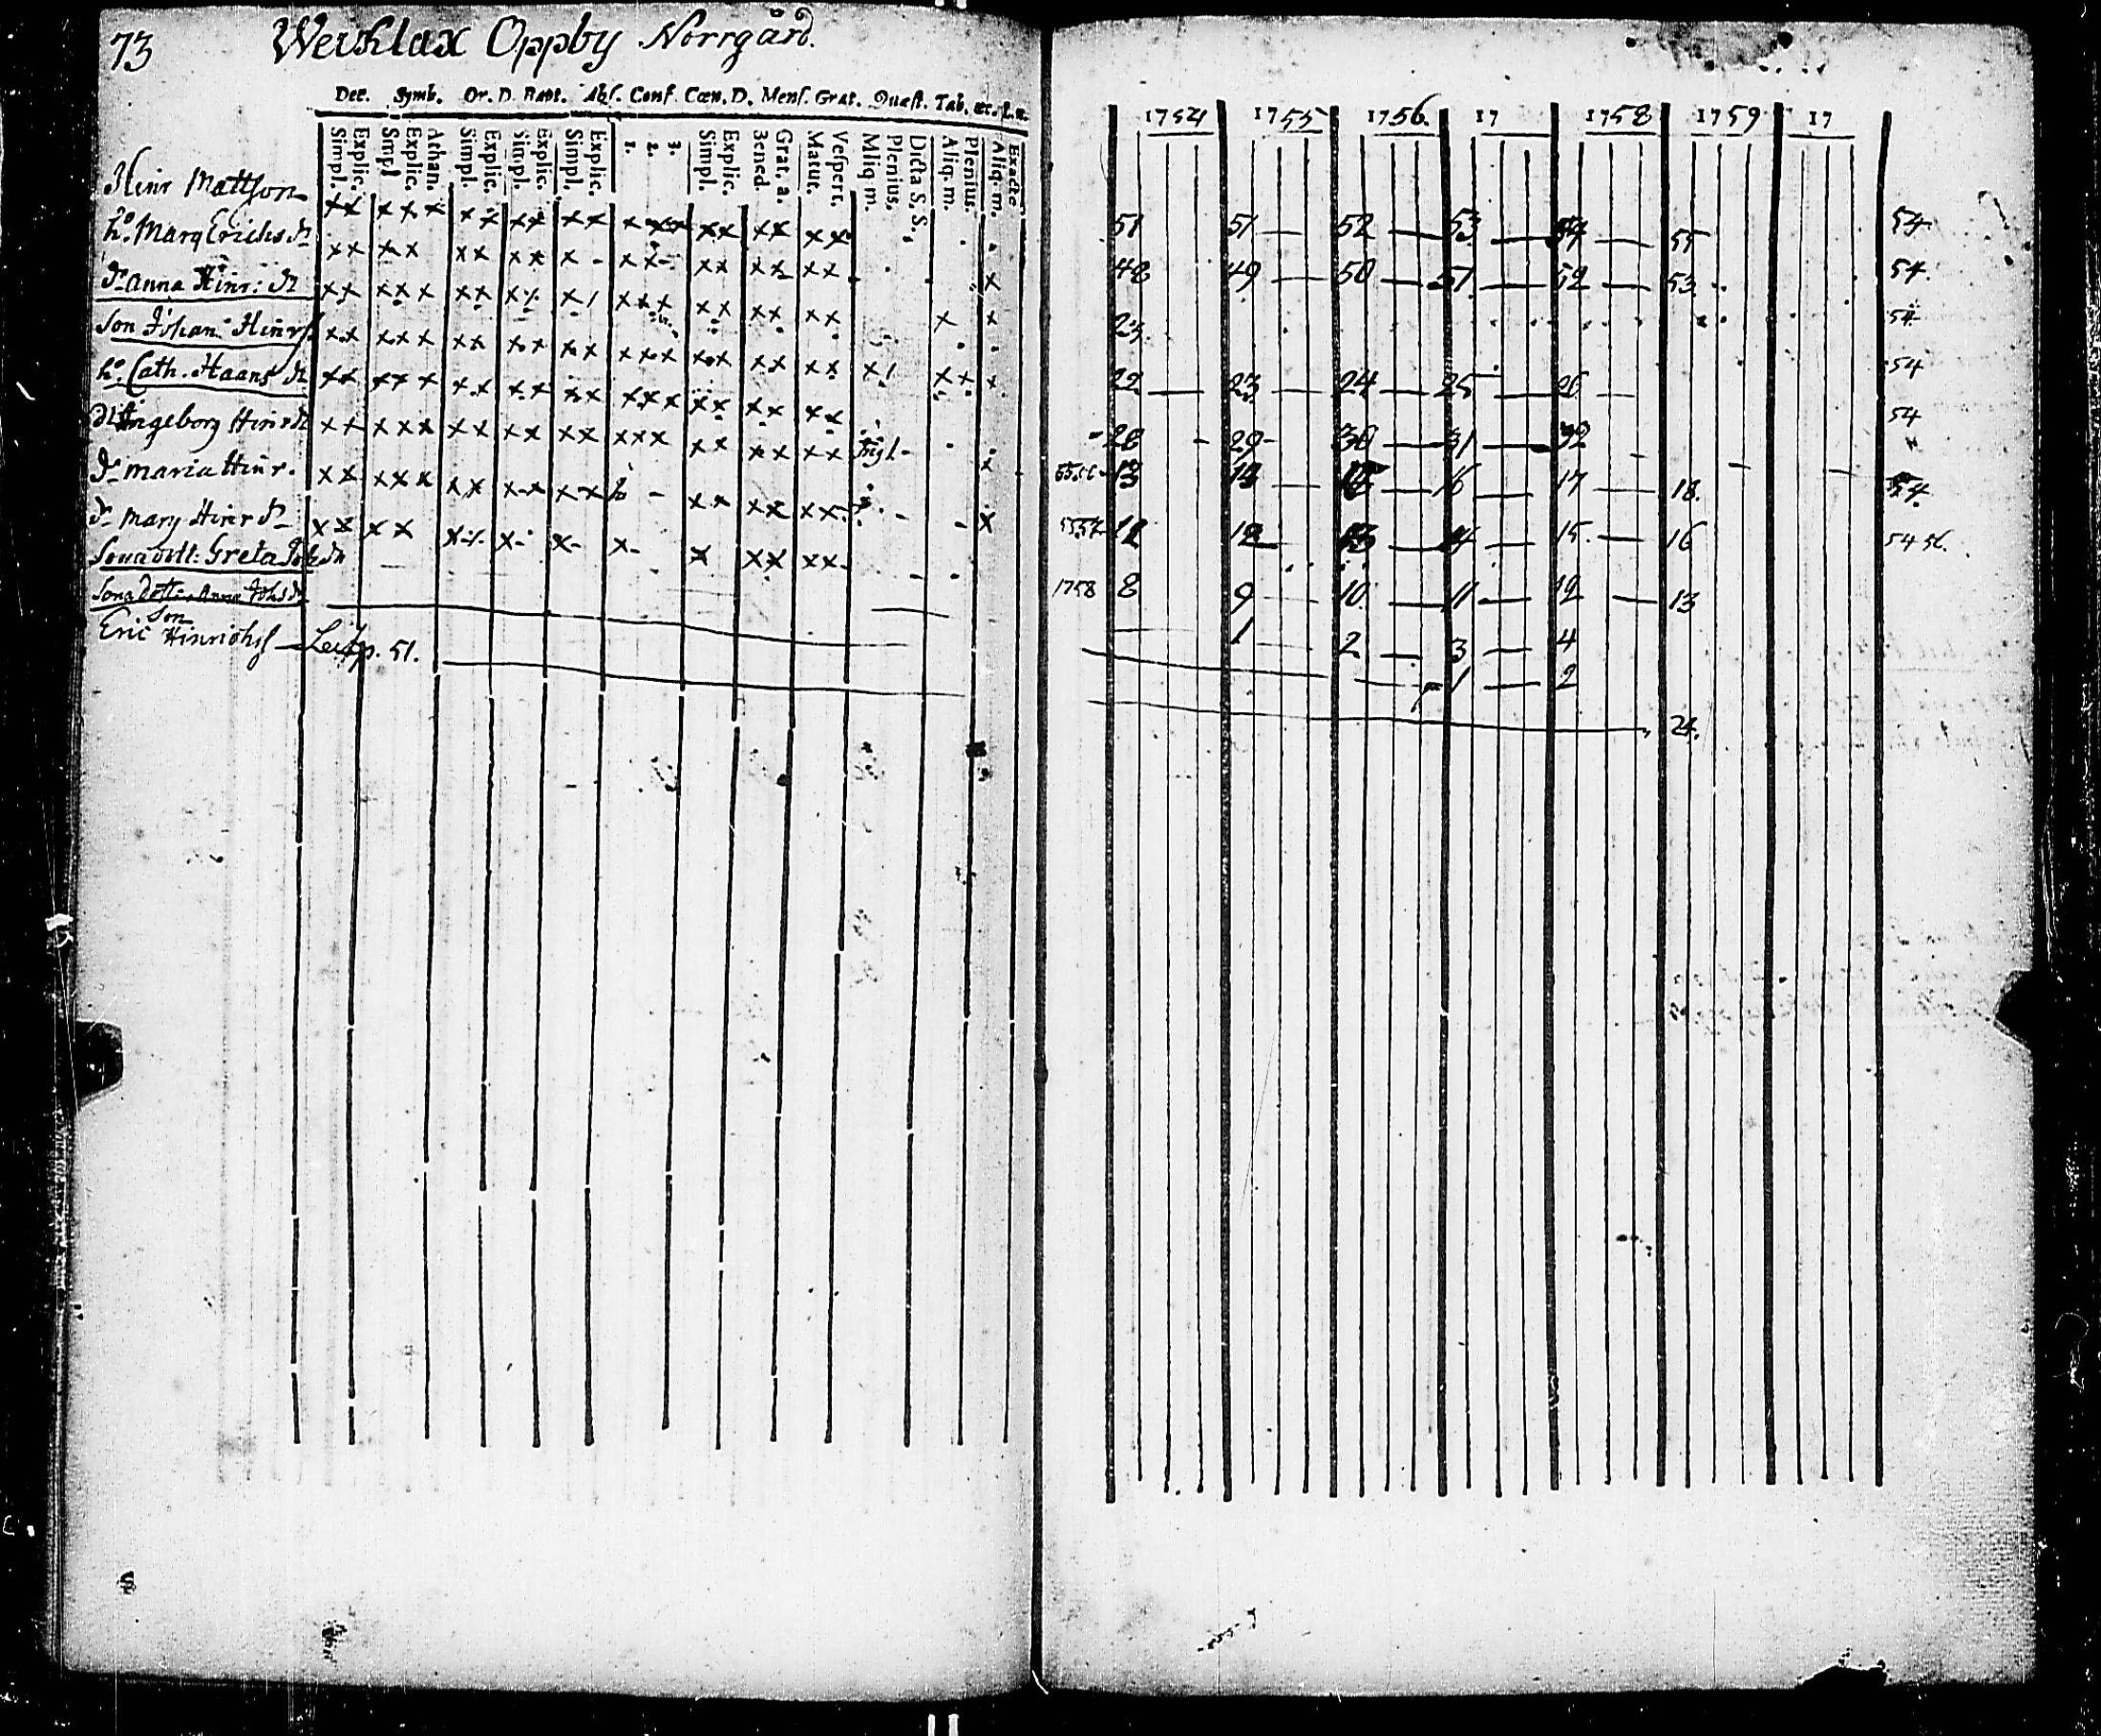 73 Werklax Oppby Norrgård.
Dec. Symb. Or. D. Bapt. Abs. Conf. Cœn. D. Mens. Grat. Quæst. Tab. œc. L.n.
Simpl. Explic. Simpl Explic. Athan. Simpl. Explic. Simpl. Explic. Simpl. Explic. 1. 2. 3. Simpl. Explic. Bened. Grat. a. Matut. Vespert. Aliq. m. Plenius. Dicta S. S. Aliq. m. Plenius. Aliq. m. Exacte
1754 1755 1756 17 1758 1759 17
Hinr Mattson 51 51 52 53 54 55 54
ho. Marg Erichs dr 48 49 50 51 52 53 54.
dr Anna Hinr: dr 23. 54
Son Johan Hinrs. 22 23 24 25 26 54
ho. Cath. Haans dr 28 29 30 31 32 54
dr Ingeborg Hinr dr 13 16 17 18. 54
dr Maria Hinr. 12 13 14 15. 16 54 56.
dr Marg Hinr dr 1758 8 9 10 11 12 13
Sonadott: Greta Joh dr 1 2 3 4
Sonadott: Anna Johs dr 1 2
Son
Eric Hinrichs p. 51. 24.